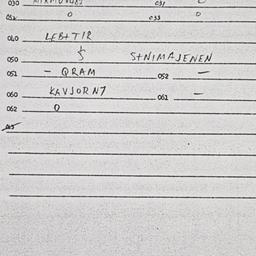 030 031
0 033 0
040 LEB+TIR
050 S S+NIMAJENEN
051 - QRAM 052 -
060 KAVJORN7 061 -
062 0